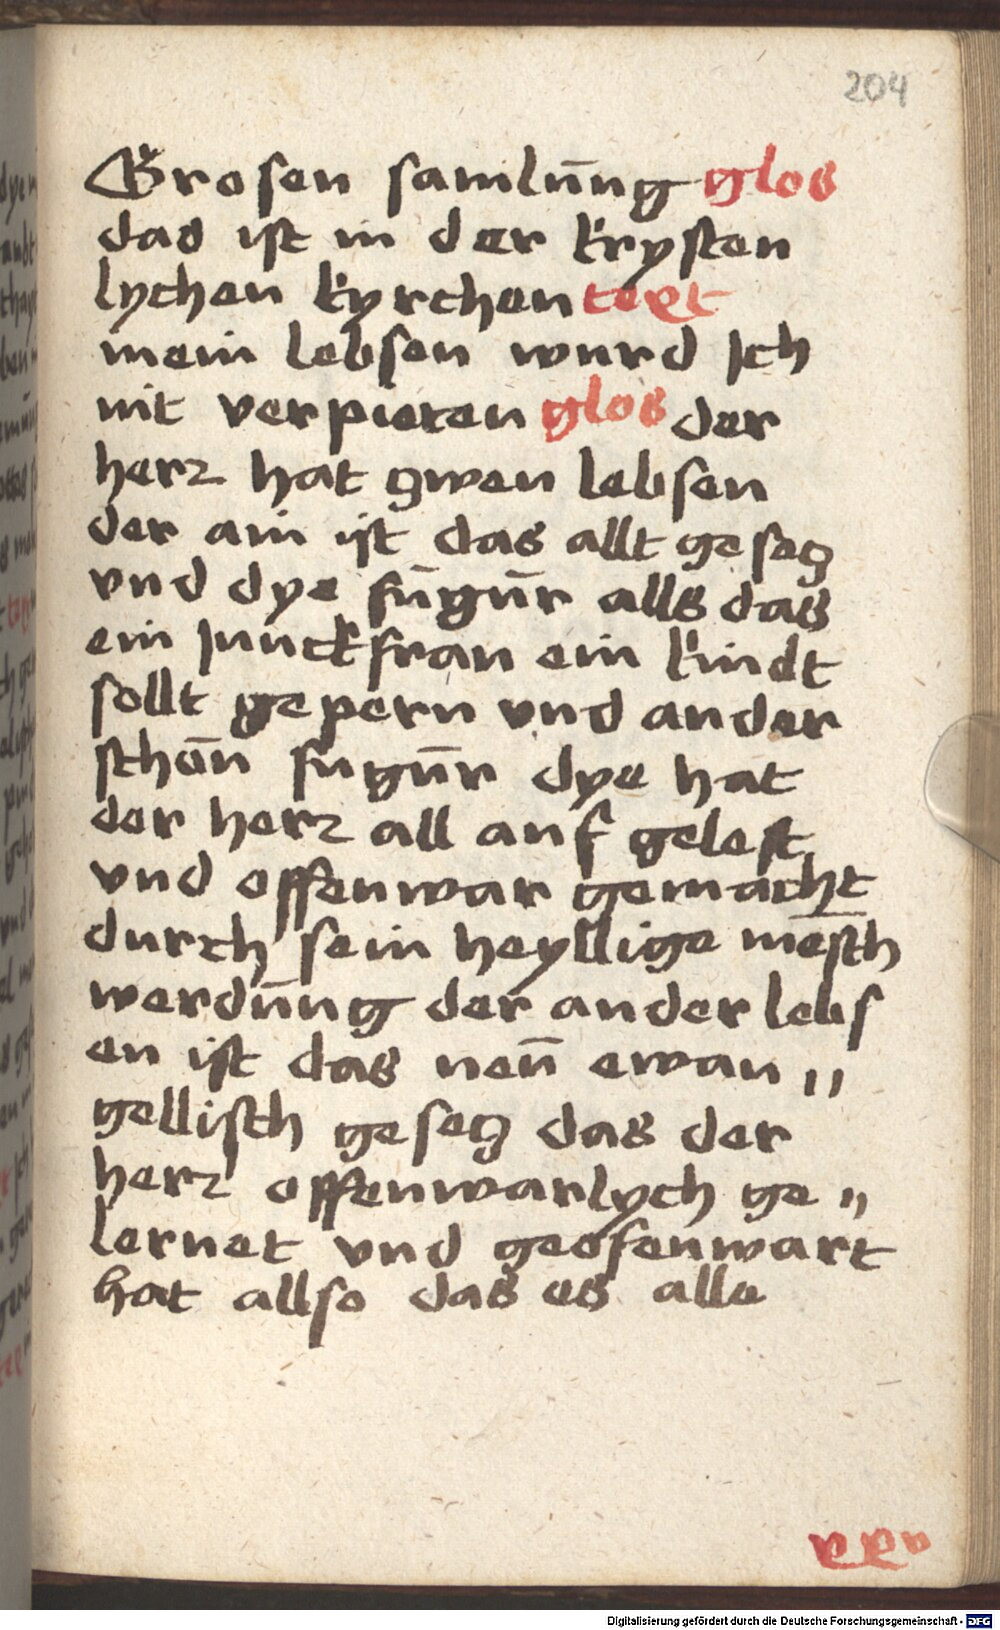 204
Grosen samlūng glos
das ist in der krysten
lychen kyrchen text
mein lebsen wurd Ich
nit verpieten glos der
herz hat zwen lebsen
der ain ist das allt gesetz
vnd dye fūgūr alls das
ein Junckfrau ein kindt
sollt gepern vnd ander
schōn fugūr dye hat
der herz all auf gelest
vnd offenwar gemacht
durch sein heyllige mēsch
werdūng der ander lebs
en ist das neū ewan〃
gellisch gesetz das der
herz offenwarlych ge〃
lernet vnd geofenwart
hat allso das es alle
xxv
Digitalisierung gefördert durch die Deutsche Forschungsgemeinschaft - DFG